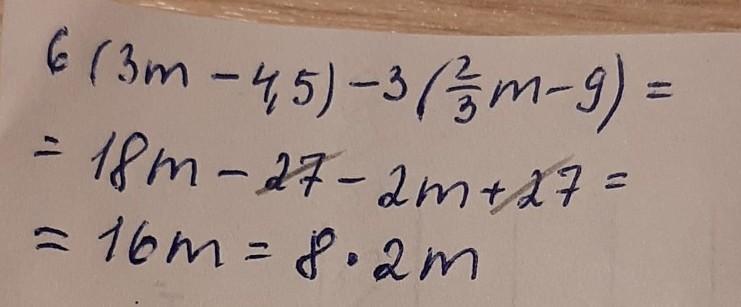 6 (3m - 4,5) - 3 (2/3 m - 9) =
= 18m - 27 - 2m + 27 =
= 16m = 8 · 2m